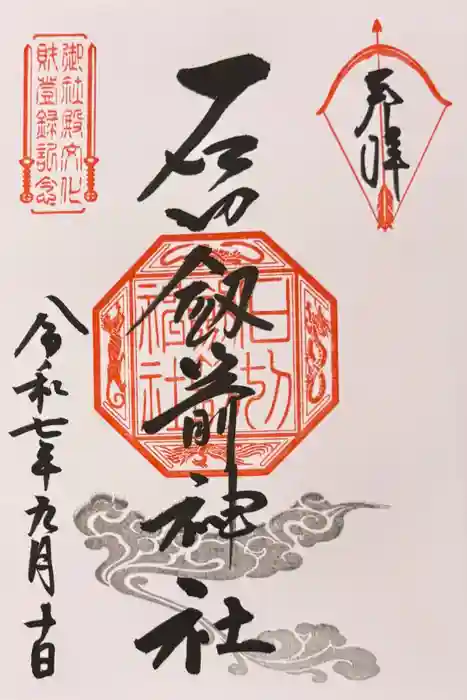 奉拝
石切劔箭神社
石切
神社
御社殿文化
財登録記念
令和七年九月十日